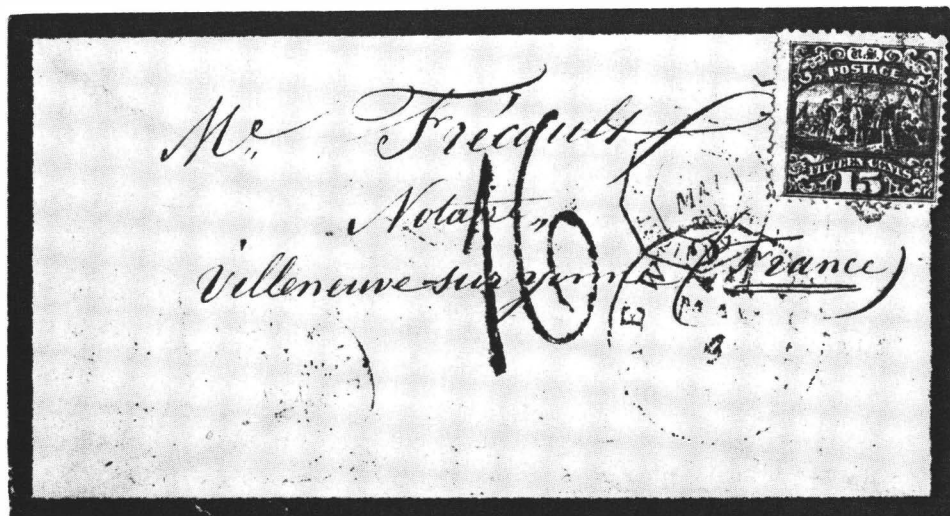 U.S.
POSTAGE
FIFTEEN CENTS
15
Me. Frécault
Notaire,
16
Villeneuve sur yonne (France)
MAI